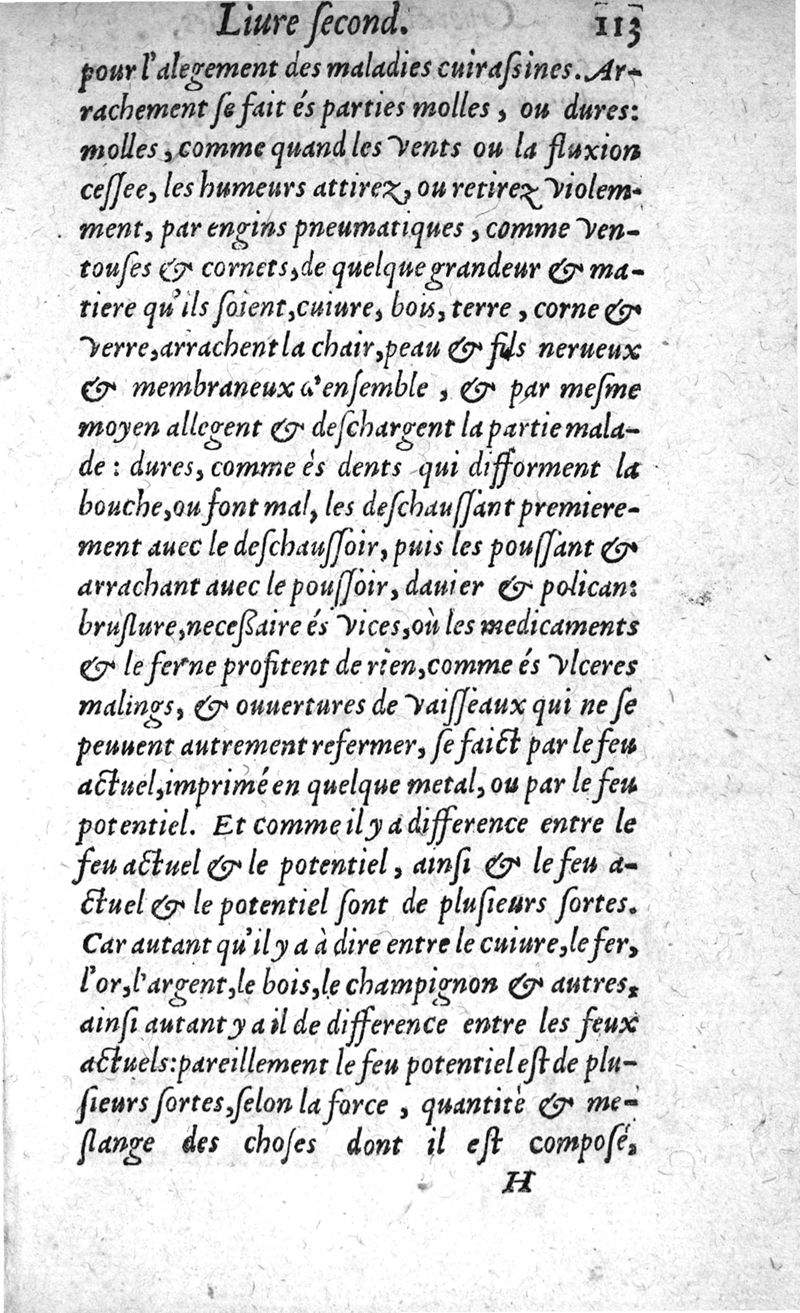 Liure ſecond. 113
pour l'alegement des maladies cuiraſsines. Ar-
rachement ſe fait és parties molles, ou dures:
molles, comme quand les vents ou la fluxion
ceſſee, les humeurs attirez, ou retirez violem-
ment, par engins pneumatiques, comme ven-
touſes & cornets, de quelque grandeur & ma-
tiere qu'ils ſoient, cuiure, bois, terre, corne &
verre, arrachent la chair, peau & fils nerueux
& membraneux d'enſemble, & par meſme
moyen allegent & deſchargent la partie mala-
de: dures, comme és dents qui difforment la
bouche, ou font mal, les deſchauſſant premiere-
ment auec le deſchauſſoir, puis les pouſſant &
arrachant auec le pouſſoir, dauier & polican:
bruſlure, neceſſaire és vices, où les medicaments
& le fer ne profitent de rien, comme és vlceres
malings, & ouuertures de vaiſſeaux qui ne ſe
peuuent autrement refermer, ſe faict par le feu
actuel, imprimé en quelque metal, ou par le feu
potentiel. Et comme il y a difference entre le
feu actuel & le potentiel, ainſi & le feu a-
ctuel & le potentiel ſont de pluſieurs ſortes.
Car autant qu'il y a à dire entre le cuiure, le fer,
l'or, l'argent, le bois, le champignon & autres,
ainſi autant y a il de difference entre les feux
actuels: pareillement le feu potentiel eſt de plu-
ſieurs ſortes, ſelon la force, quantité & me-
ſlange des choſes dont il eſt compoſé,
H